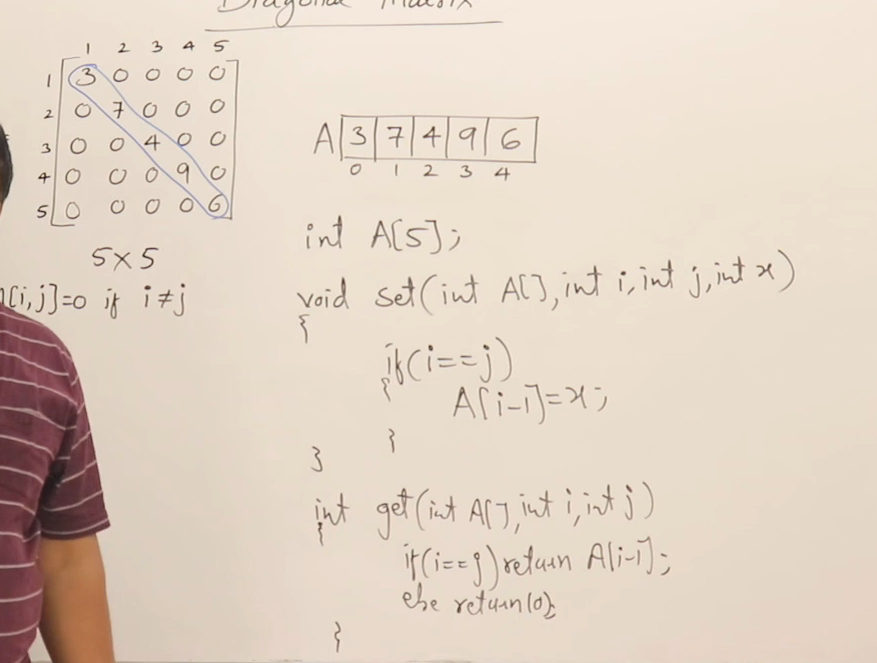 Diagonal Matrix
1 2 3 4 5
1 3 0 0 0 0
2 0 7 0 0 0
3 0 0 4 0 0
4 0 0 0 9 0
5 0 0 0 0 6
5×5
[i,j]=0 if i≠j
A 3 7 4 9 6
0 1 2 3 4
int A[5];
void set(int A[], int i, int j, int x)
{
if(i==j)
{
A[i-1]=x;
}
}
int get(int A[], int i, int j)
{
if(i==j) return A[i-1];
else return(0);
}